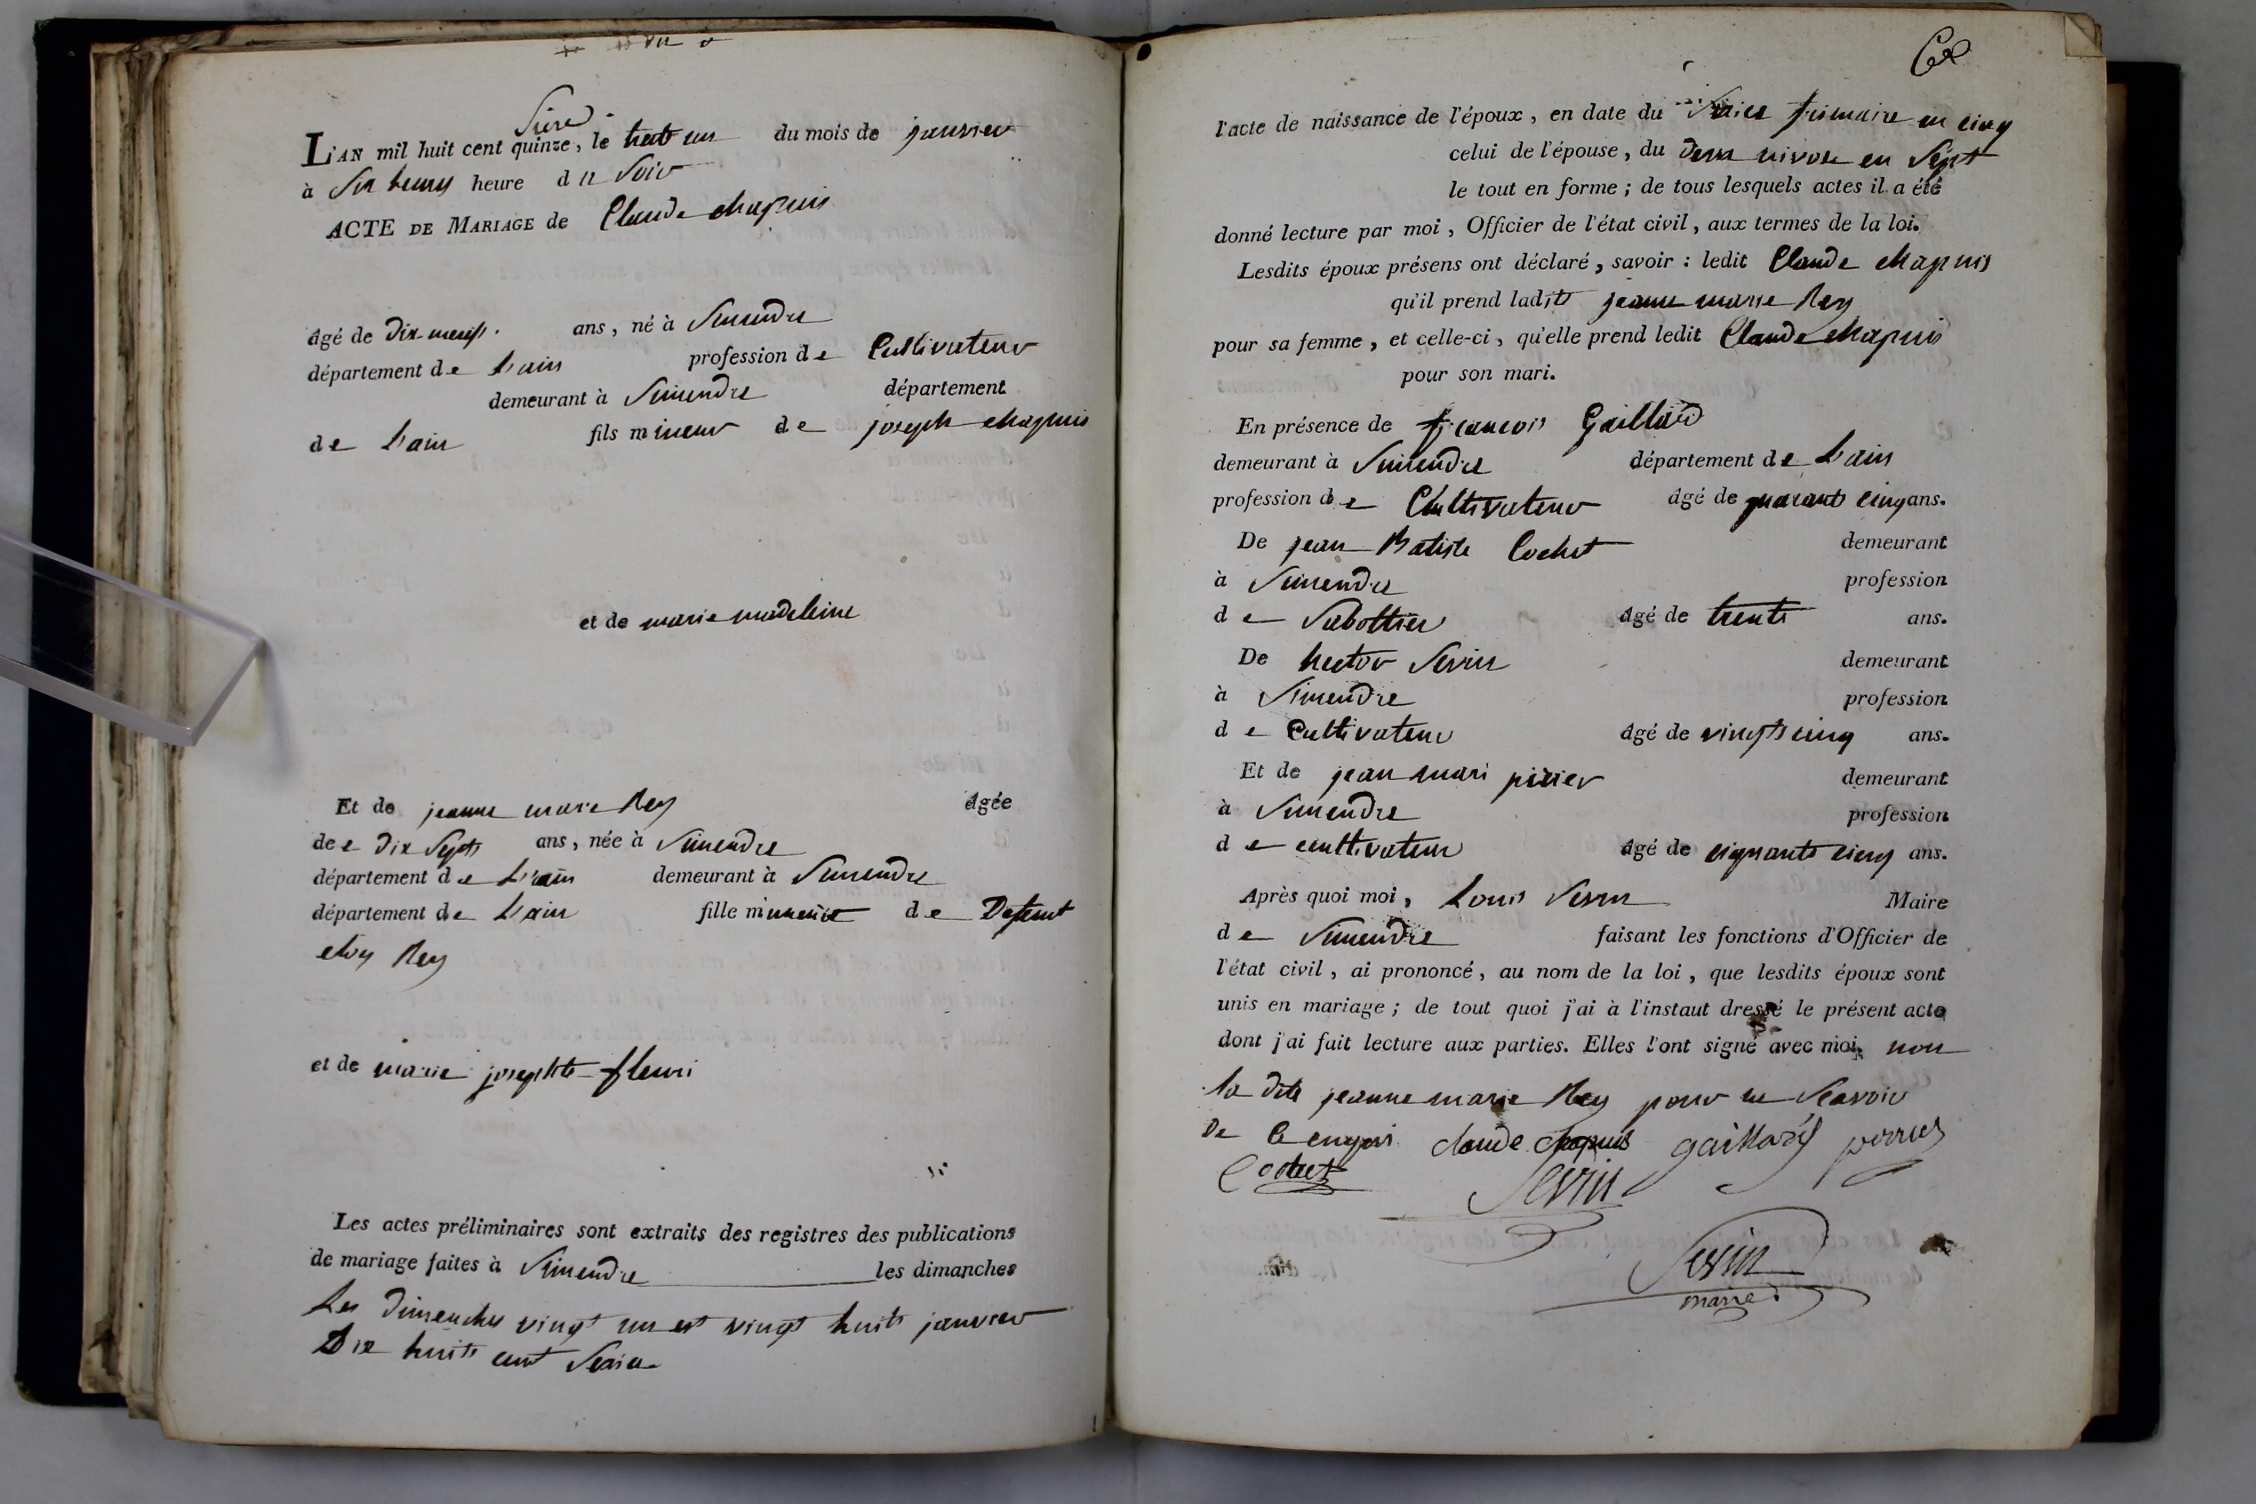 L'AN mil huit cent quinze, le trent un du mois de janvier
à Six heures heure du Soir
ACTE DE MARIAGE de Claude chapuis
âgé de Dix-neuf ans, né à Simendre
département de L'ain profession de Cultivateur
demeurant à Simendre département
de L'ain fils mineur de joseph chapuis
et de marie madeleine
Et de jeanne marie Rey âgée
de e Dix Septs ans, née à Simendre
département de L'ain demeurant à Simendre
département de L'ain fille mineure de Defunt
eloy Rey
et de marie josephte fleuri
Les actes préliminaires sont extraits des registres des publications
de mariage faites à Simendre les dimanches
Les Dimenches vingt un et vingt huits janvier
Dix huits cent Seaize
l'acte de naissance de l'époux, en date du frimaire en cinq
celui de l'épouse, du Deux nivose en Sept
le tout en forme ; de tous lesquels actes il a été
donné lecture par moi, Officier de l'état civil, aux termes de la loi.
Lesdits époux présens ont déclaré, savoir : ledit Claude chapuis
qu'il prend ladite jeanne marie Rey
pour sa femme, et celle-ci, qu'elle prend ledit Claude chapuis
pour son mari.
En présence de francois Gaillard
demeurant à Simendre département de L'ain
profession de Cultivateur âgé de quarante cinq ans.
De jean Batiste Cochet demeurant
à Simendre profession
de Sabottier âgé de trente ans.
De hector Sevin demeurant
à Simendre profession
de Cultivateur âgé de vingts cinq ans.
Et de jean mari perier demeurant
à Simendre profession
de cultivateur âgé de cinquante cinq ans.
Après quoi moi, Louis Sevin Maire
de Simendre faisant les fonctions d'Officier de
l'état civil, ai prononcé, au nom de la loi, que lesdits époux sont
unis en mariage ; de tout quoi j'ai à l'instaut dressé le présent acte
dont j'ai fait lecture aux parties. Elles l'ont signé avec moi, non
la dite jeanne marie Rey pour ne Scavoir
De Ce enquis claude chapuis gaillard perrier
Cochet Sevin
Sevin
maire